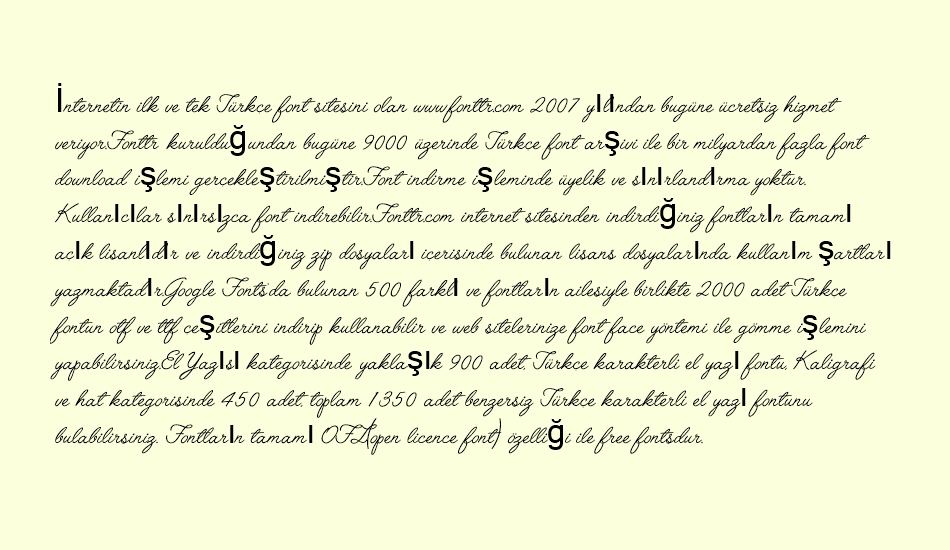 İnternetin ilk ve tek Türkce font sitesini olan www.fonttr.com 2007 yılından bugüne ücretsiz hizmet
veriyor.Fonttr kurulduğundan bugüne 9000 üzerinde Türkce font arşivi ile bir milyardan fazla font
download işlemi gercekleştirilmiştir.Font indirme işleminde üyelik ve sınırlandırma yoktur.
Kullanıcılar sınırsızca font indirebilir.Fonttr.com internet sitesinden indirdiğiniz fontların tamamı
acık lisanlıdır ve indirdiğiniz zip dosyaları icerisinde bulunan lisans dosyalarında kullanım şartları
yazmaktadır.Google Fontsda bulunan 500 farklı ve fontların ailesiyle birlikte 2000 adet Türkce
fontun otf ve ttf ceşitlerini indirip kullanabilir ve web sitelerinize font face yöntemi ile gömme işlemini
yapabilirsiniz.El Yazısı kategorisinde yaklaşık 900 adet. Türkce karakterli el yazı fontu, Kaligrafi
ve hat kategorisinde 450 adet. toplam 1350 adet benzersiz Türkce karakterli el yazı fontunu
bulabilirsiniz. Fontların tamamı OFL(open licence font) özelliği ile free fontsdur.